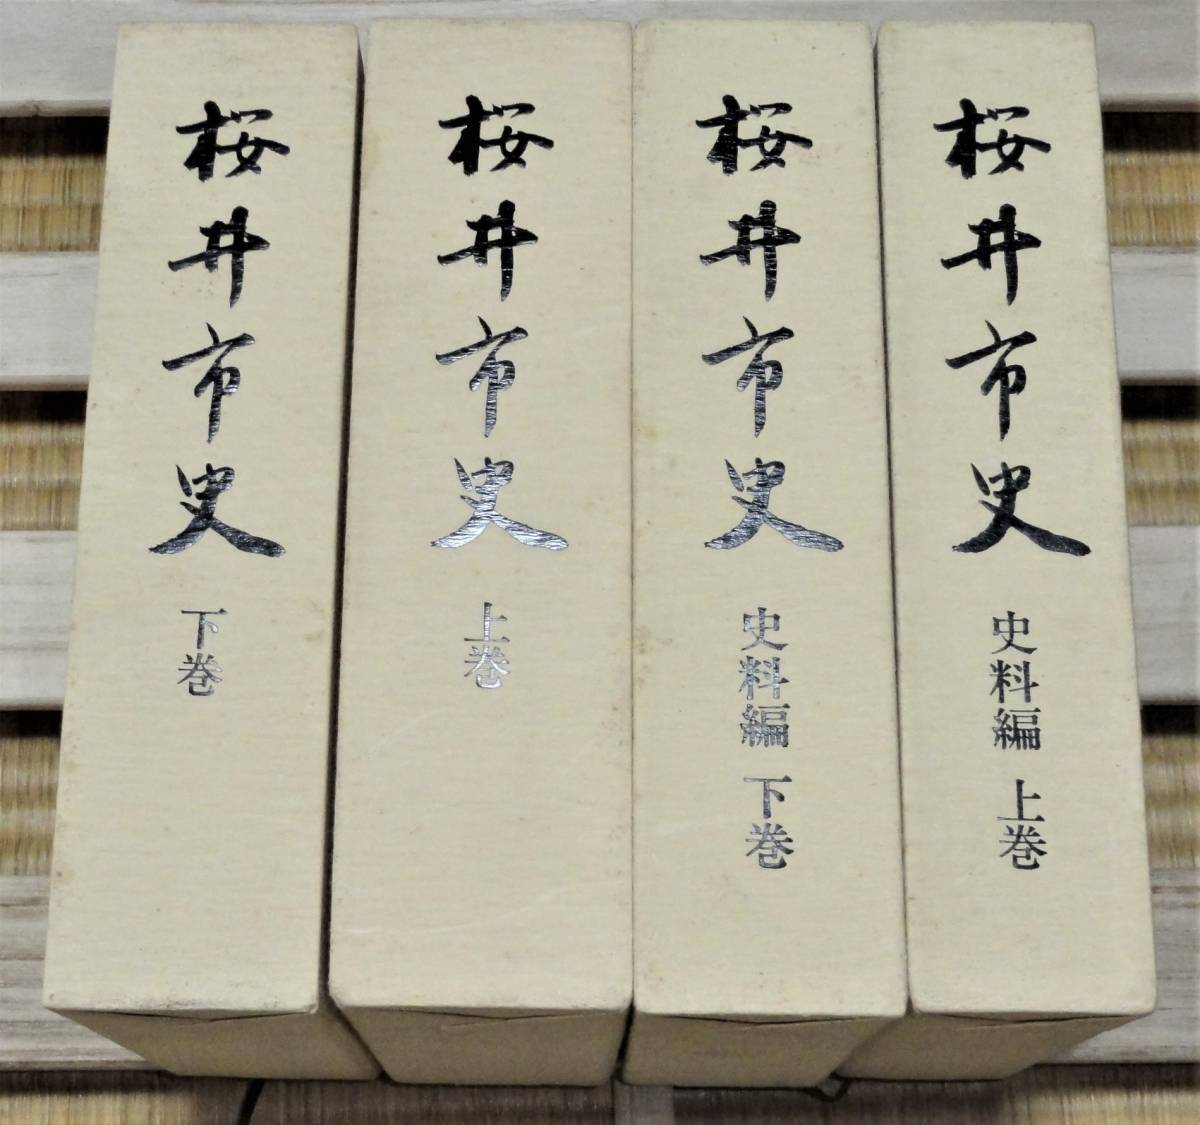 桜井市史 下巻
桜井市史 上巻
桜井市史 史料編 下巻
桜井市史 史料編 上巻